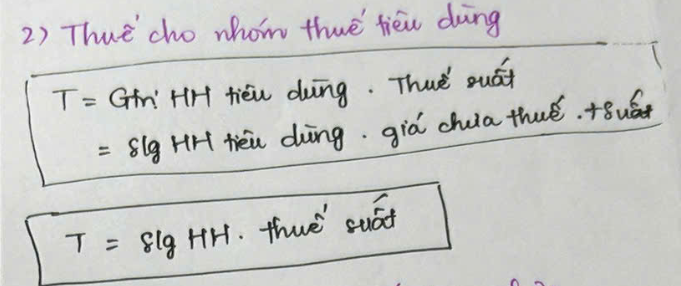 2) Thuế cho nhóm thuế tiêu dùng
T = Gtrị HH tiêu dùng . Thuế suất
= Slg HH tiêu dùng . giá chưa thuế . tsuất
T = Slg HH . thuế suất